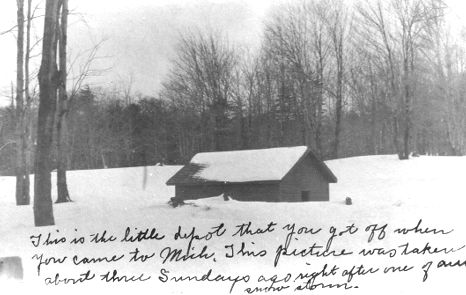 This is the little depot that you got off when
you came to Mich. This picture was taken
about three Sundays ago right after one of our
snow storm.